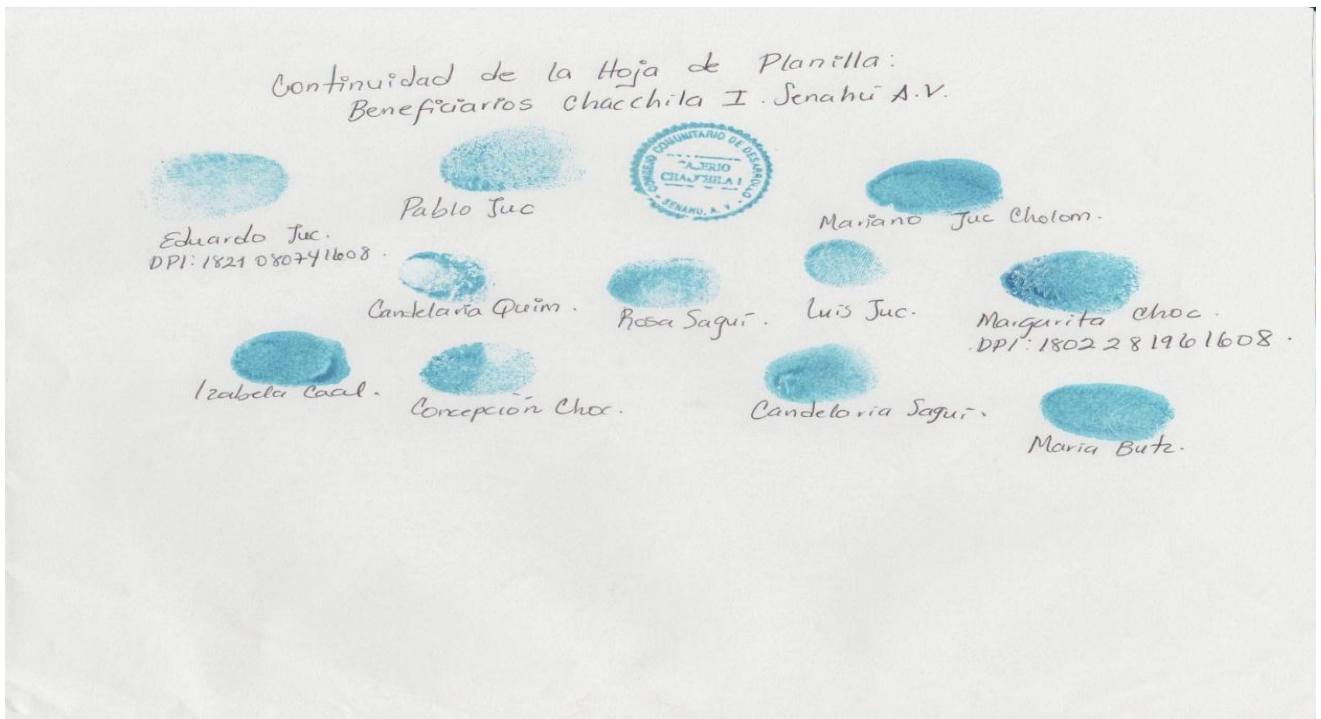 Continuidad de la Hoja de Planilla:
Beneficiarios Chacchila I. Senahú A.V.
CONSEJO COMUNITARIO DE DESARROLLO
CHACCHILA I
SENAHU, A. V.
Pablo Juc
Mariano Juc Cholom.
Eduardo Juc.
DPI: 1821 080741608.
Candelaria Quim.
Rosa Saquí.
Luis Juc.
Margarita Choc.
DPI: 1802 28196 1608.
Izabela Caal.
Concepción Choc.
Candelaria Saquí.
María Butz.